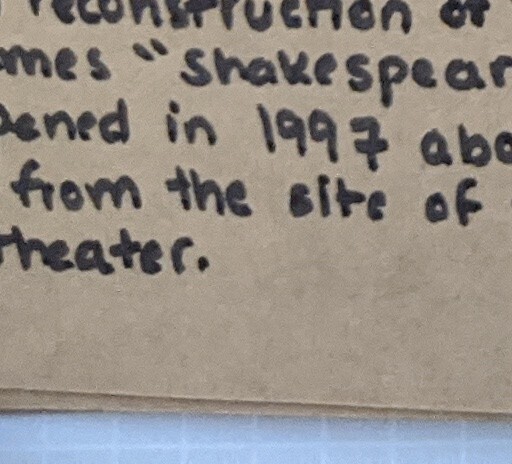 reconstruction of
mes "Shakespear
ened in 1997 abo
from the site of
theater.